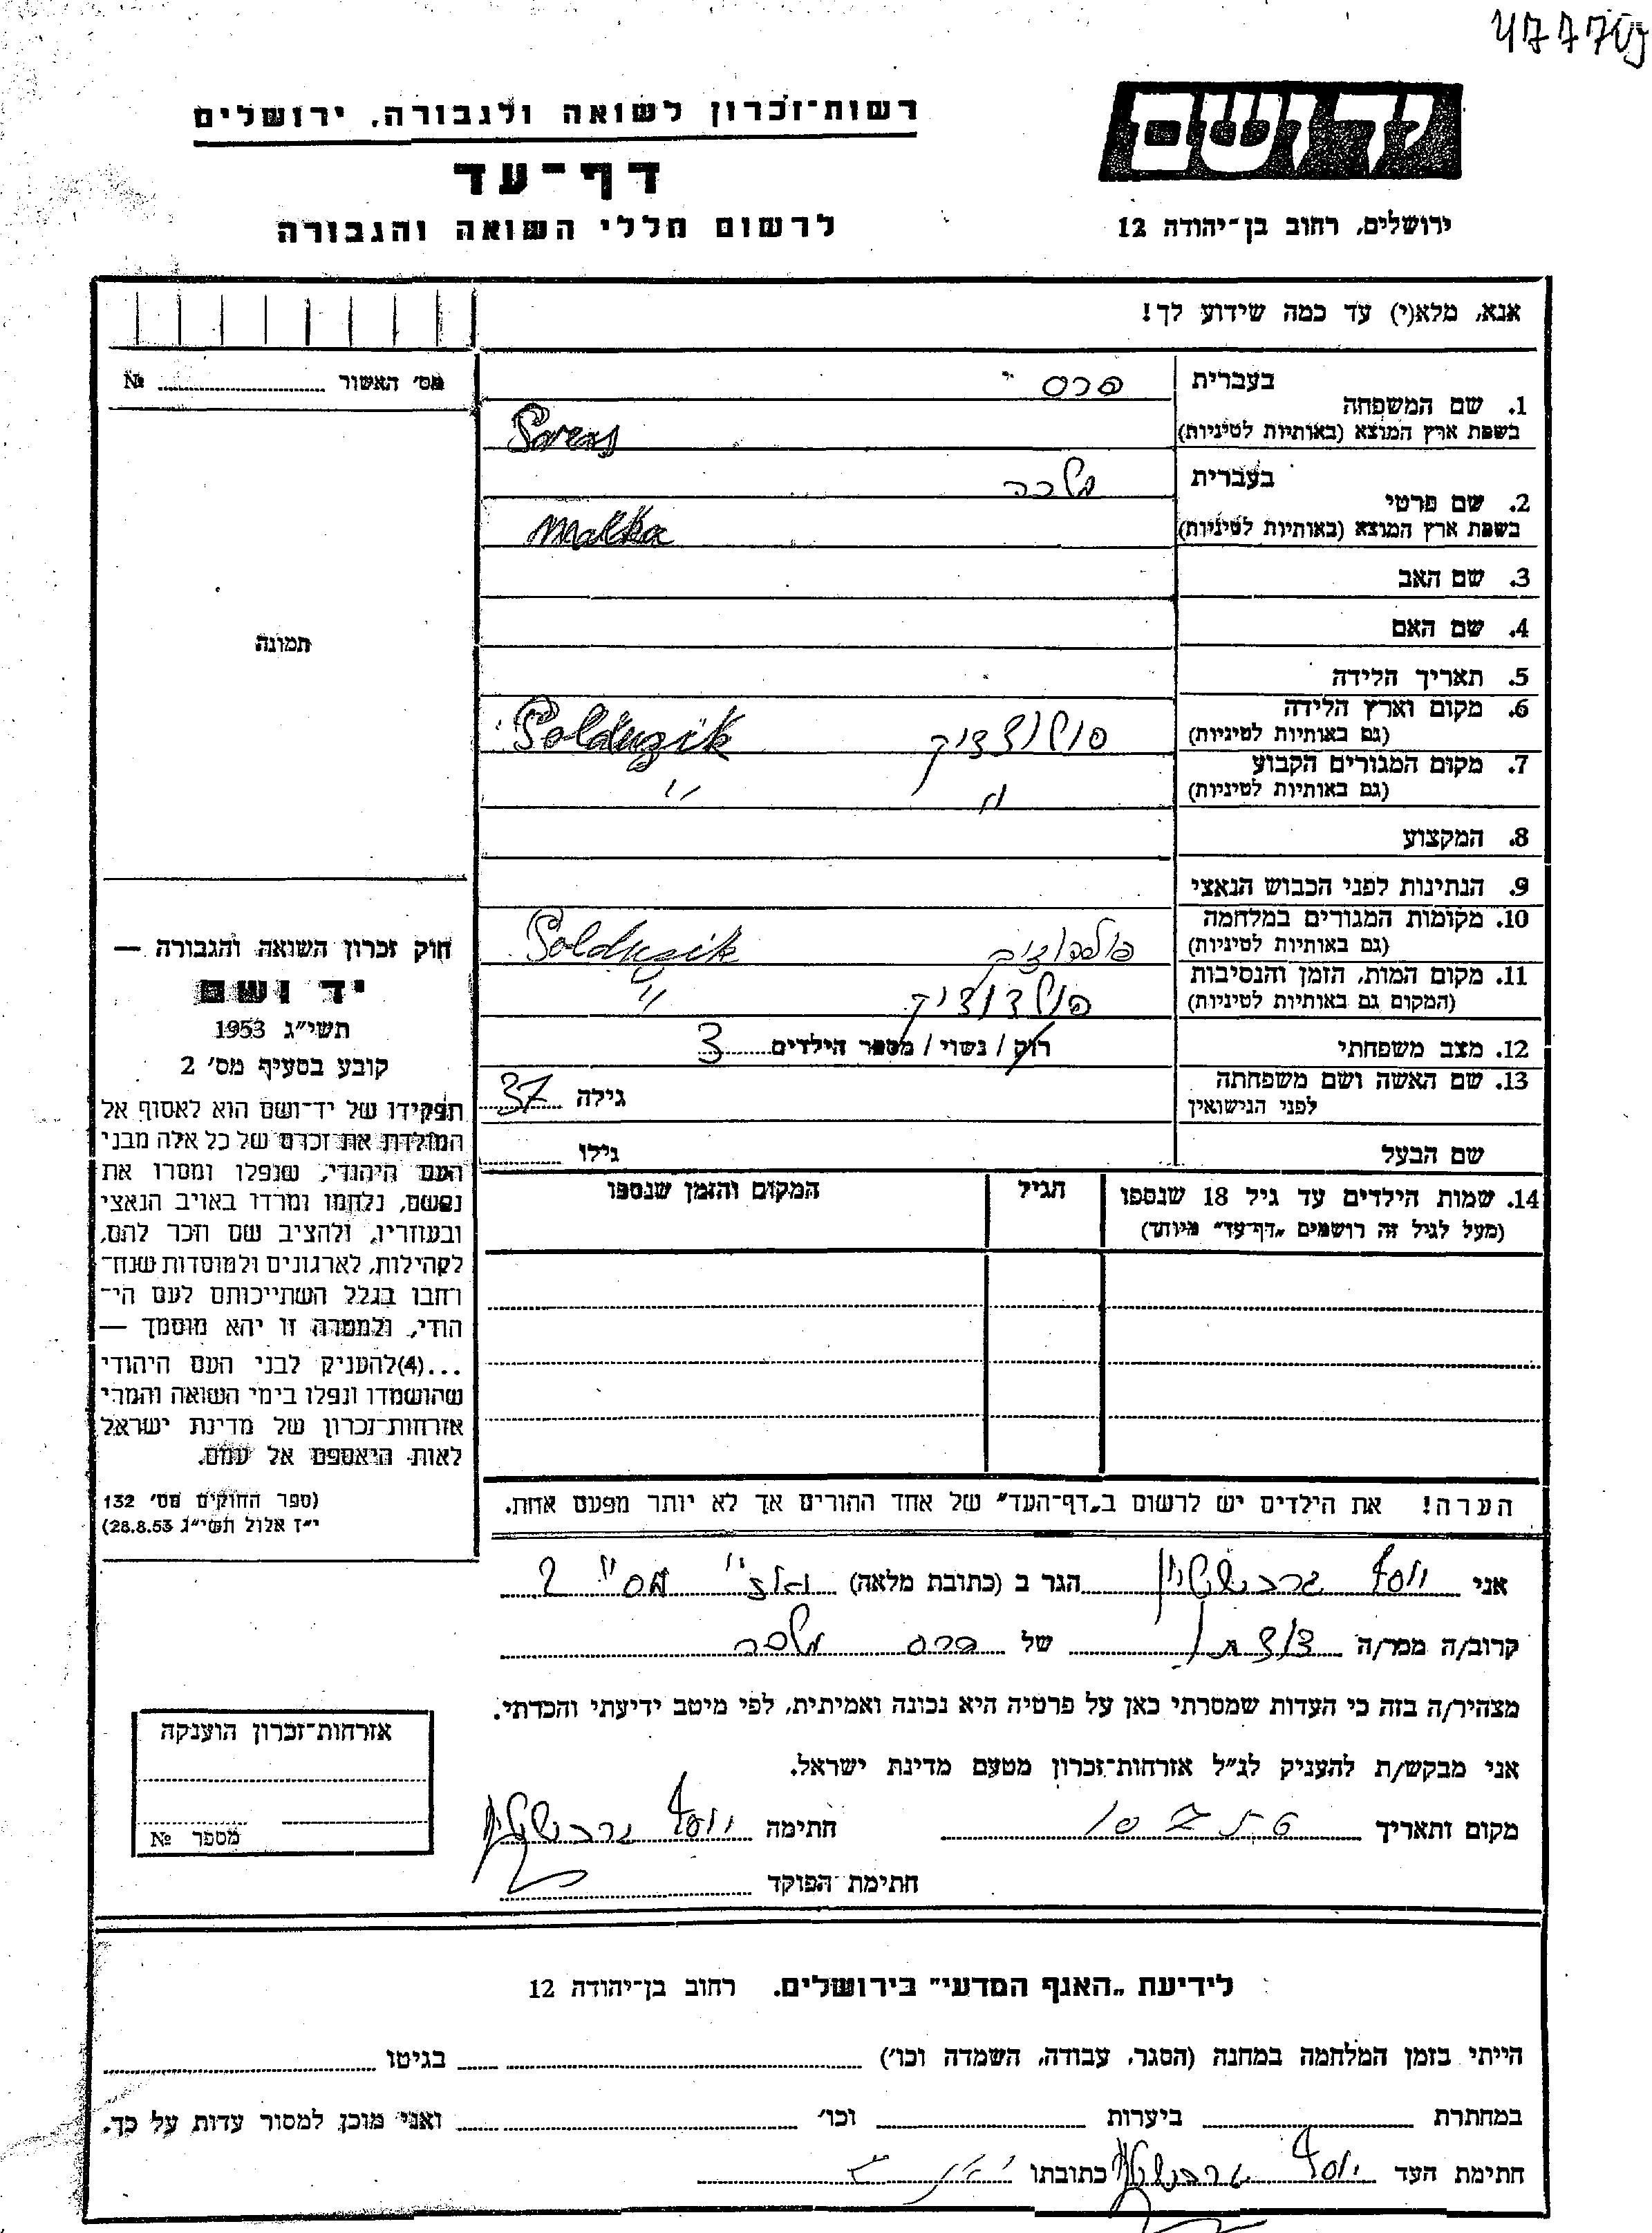 רשות־זכרון לשואה ולגבורה, ירושלים
דף־עד
לרשום חללי השואה והגבורה
יד ושם
ירושלים, רחוב בן־יהודה 12
אנא, מלא(י) עד כמה שידוע לך!
מס' האשור № ..........
בעברית פרס
1. שם המשפחה
בשפת ארץ המוצא (באותיות לטיניות)
בעברית מלכה
2. שם פרטי
בשפת ארץ המוצא (באותיות לטיניות) Malka
3. שם האב
4. שם האם
תמונה
5. תאריך הלידה
6. מקום וארץ הלידה
(גם באותיות לטיניות)
7. מקום המגורים הקבוע
(גם באותיות לטיניות) " "
8. המקצוע
9. הנתינות לפני הכבוש הנאצי
10. מקומות המגורים במלחמה
(גם באותיות לטיניות)
11. מקום המות, הזמן והנסיבות
(המקום גם באותיות לטיניות) "
12. מצב משפחתי רוק / נשוי / מספר הילדים 3
13. שם האשה ושם משפחתה
לפני הנישואין גילה 37
שם הבעל גילו
14. שמות הילדים עד גיל 18 שנספו הגיל המקום והזמן שנספו
(מעל לגיל זה רושמים „דף־עד" מיוחד)
הערה! את הילדים יש לרשום ב„דף־העד" של אחד ההורים אך לא יותר מפעם אחת.
חוק זכרון השואה והגבורה —
יד ושם
תשי"ג 1953
קובע בסעיף מס' 2
תפקידו של יד־ושם הוא לאסוף אל
המולדת את זכרם של כל אלה מבני
העם היהודי, שנפלו ומסרו את
נפשם, נלחמו ומרדו באויב הנאצי
ובעוזריו, ולהציב שם וזכר להם,
לקהילות, לארגונים ולמוסדות שנח־
רחבו בגלל השתייכותם לעם הי־
הודי, ולמטרה זו יהא מוסמך —
...(4) להעניק לבני העם היהודי
שהושמדו ונפלו בימי השואה והמרי
אזרחות־זכרון של מדינת ישראל
לאות היאספם אל עמם.
(ספר החוקים מס' 132
י"ז אלול תשי"ג 28.8.53)
אני יוסף הגר ב (כתובת מלאה)
קרוב/ה ממר/ה של פרס מלכה
מצהיר/ה בזה כי העדות שמסרתי כאן על פרטיה היא נכונה ואמיתית, לפי מיטב ידיעתי והכרתי.
אני מבקש/ת להעניק לנ"ל אזרחות־זכרון מטעם מדינת ישראל.
מקום ותאריך חתימה יוסף
חתימת הפוקד
אזרחות־זכרון הוענקה
מספר №
לידיעת „האגף המדעי" בירושלים. רחוב בן־יהודה 12
הייתי בזמן המלחמה במחנה (הסגר, עבודה, השמדה וכו') בגיטו
במחתרת ביערות וכו' ואני מוכן למסור עדות על כך.
חתימת העד יוסף כתובתו